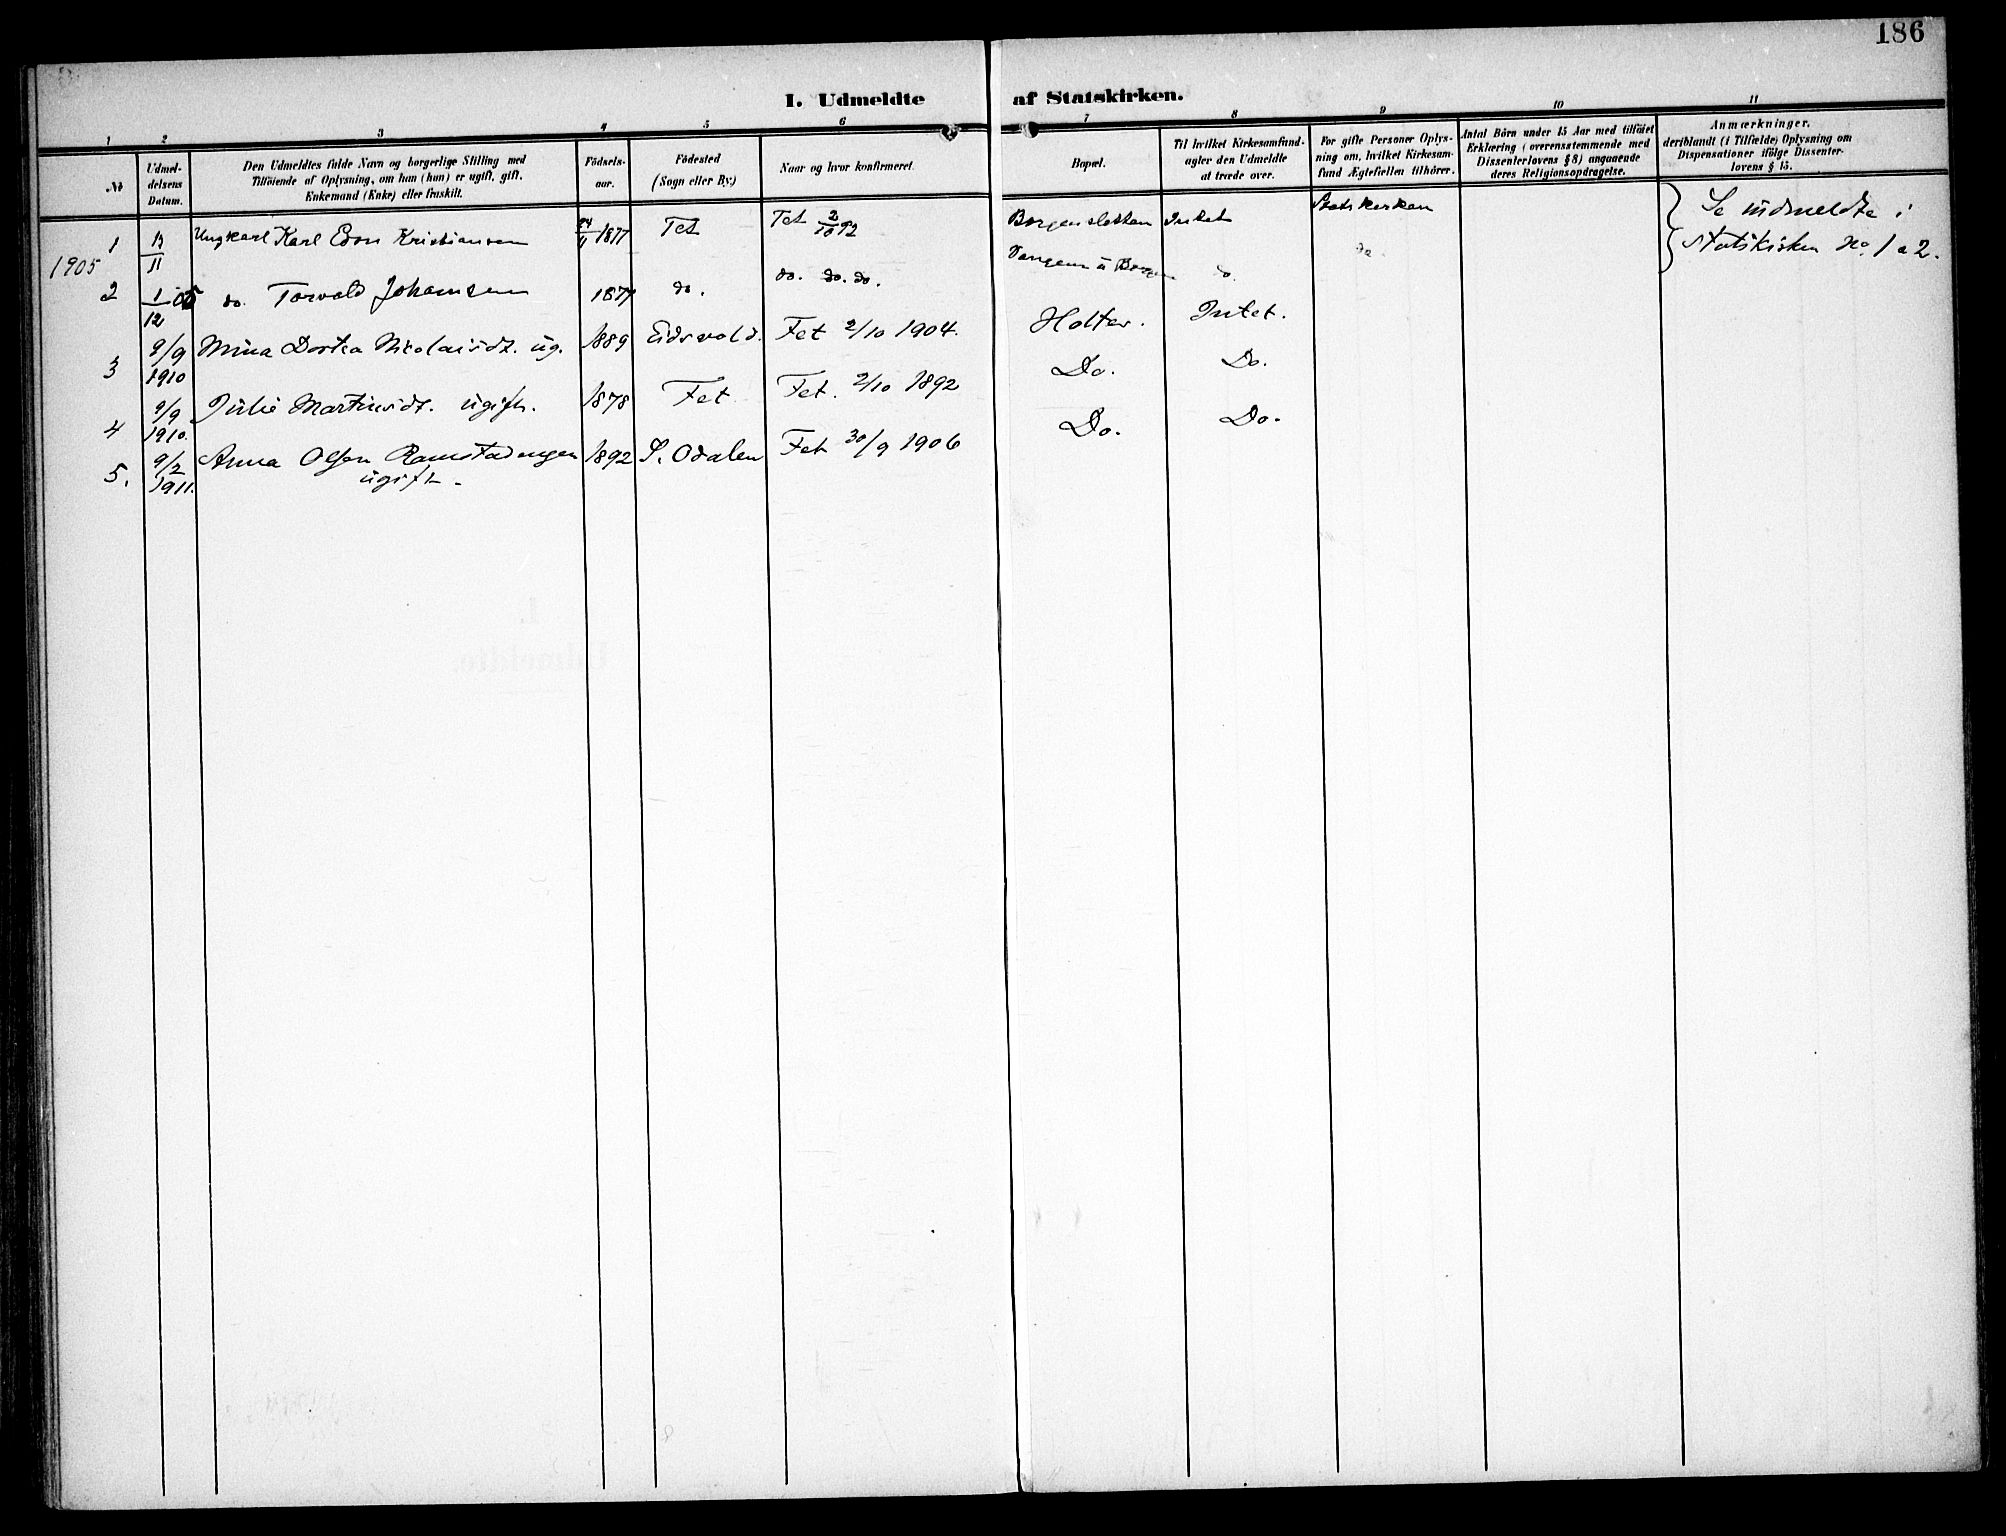 186
I. Udmeldte af Statskirken.
1 2 3 4 5 6 7 8 9 10 11
№
Udmel-
delsens
Datum.
Den Udmeldtes fulde Navn og borgerlige Stilling med
Tilföiende af Oplysning, om han (hun) er ugift, gift,
Enkemand (Enke) eller fraskilt.
Födsels-
aar.
Födested
(Sogn eller By.)
Naar og hvor konfirmeret.
Bopæl.
Til hvilket Kirkesamfund-
agter den Udmeldte
at træde over.
For gifte Personer Oplys-
ning om, hvilket Kirkesam-
fund Ægtefællen tilhörer.
Antal Börn under 15 Aar med tilföiet
Erklæring (overensstemmende med
Dissenterlovens § 8) angaaende
deres Religionsopdragelse.
Anmærkninger,
deriblandt (i Tilfælde) Oplysning om
Dispensationer ifölge Dissenter-
lovens § 15.
1905
1 Ungkarl Karl Kristiansen 1877 Fet Fet 2/10 92 Borgensletten Intet Statskirken
2 1/12 05 do. Torvald Johansen 1877 do. do. do. do. Vangen u Borgen do. do.
Se indmeldte i
Statskirken No. 1 a 2.
3 9/9 1910 Mina Dortea Nicolaisdt. ug. 1889 Eidsvold. Fet 2/10 1904. Holter. Intet.
4 9/9 1910. Julie Martinsdt. ugift. 1878 Fet Fet. 2/10 1892 Do. Do.
5. 9/2 1911. Anna Olsen Ramstadengen 1892 S. Odalen Fet 30/9 1906 Do. Do.
ugift -